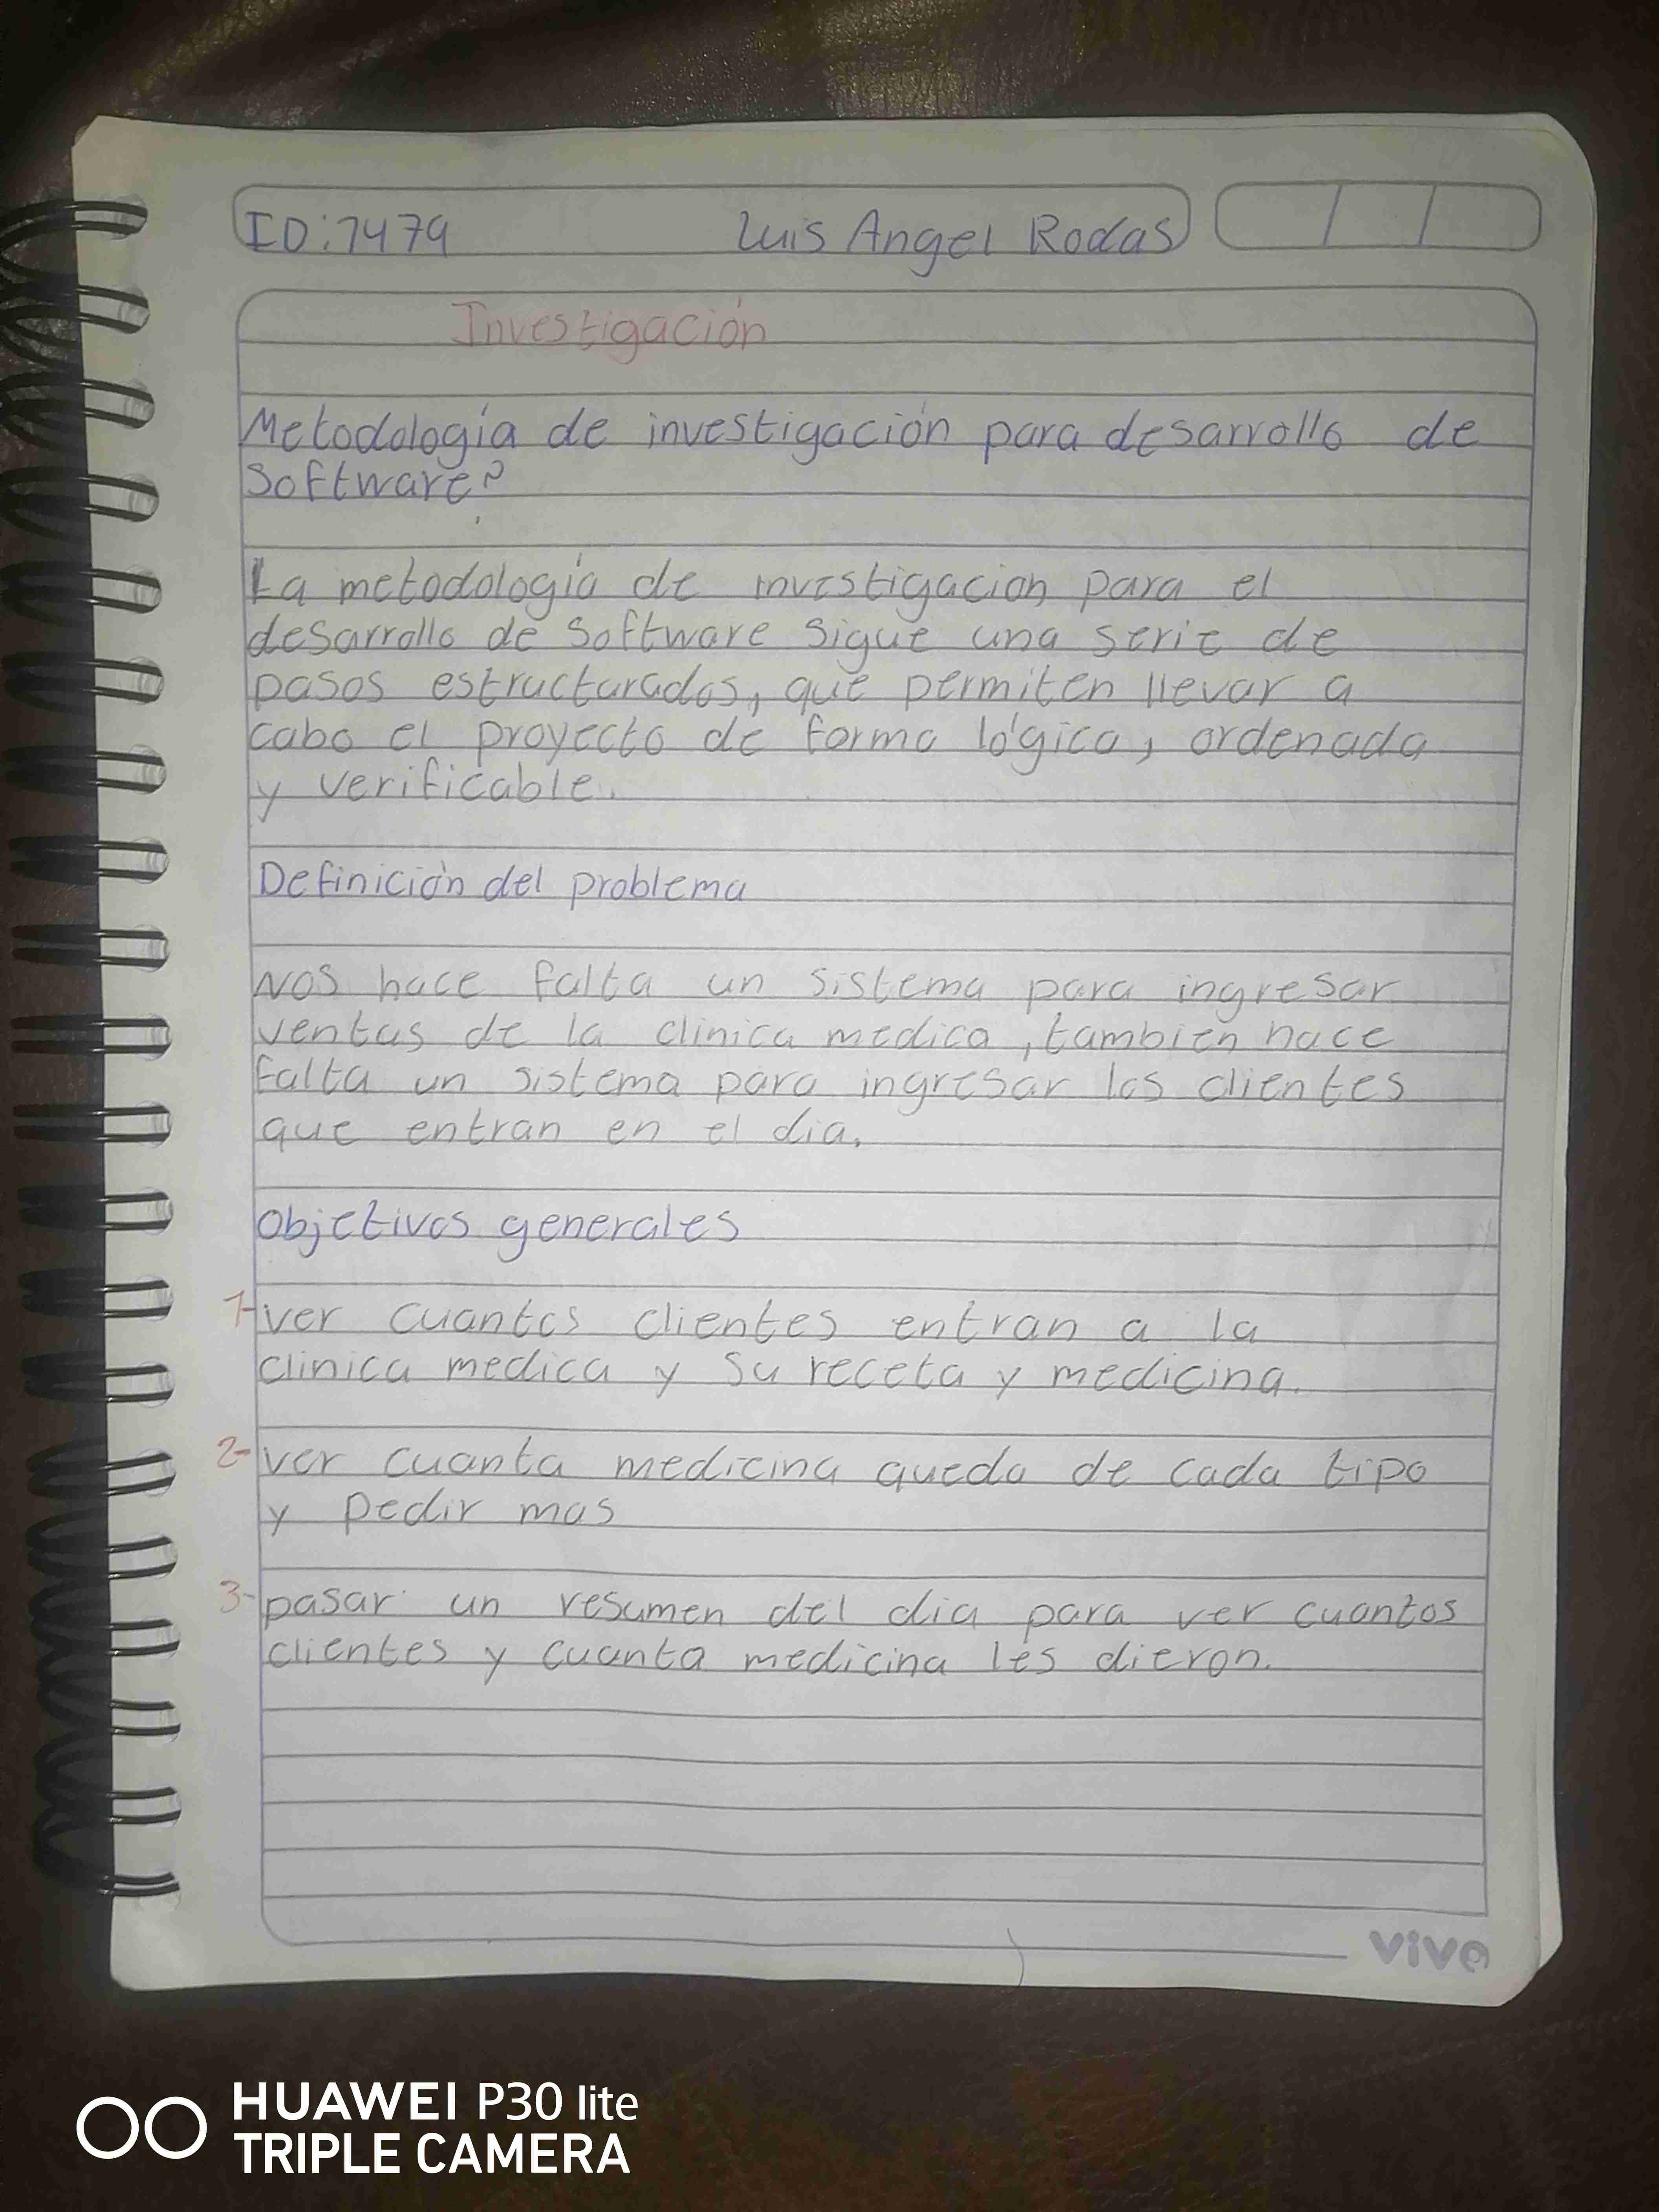 ID:7479 Luis Angel Rodas
Investigación
Metodología de investigación para desarrollo de
Software?
La metodología de investigacion para el
desarrollo de Software sigue una serie de
pasos estructurados, que permiten llevar a
cabo el proyecto de forma lógica, ordenada
y verificable.
Definición del problema
Nos hace falta un sistema para ingresar
ventas de la clinica medica, tambien hace
falta un sistema para ingresar los clientes
que entran en el dia.
Objetivos generales
1- ver cuantos clientes entran a la
clinica medica y su receta y medicina.
2- ver cuanta medicina queda de cada tipo
y pedir mas
3- pasar un resumen del dia para ver cuantos
clientes y cuanta medicina les dieron.
vive
HUAWEI P30 lite
TRIPLE CAMERA